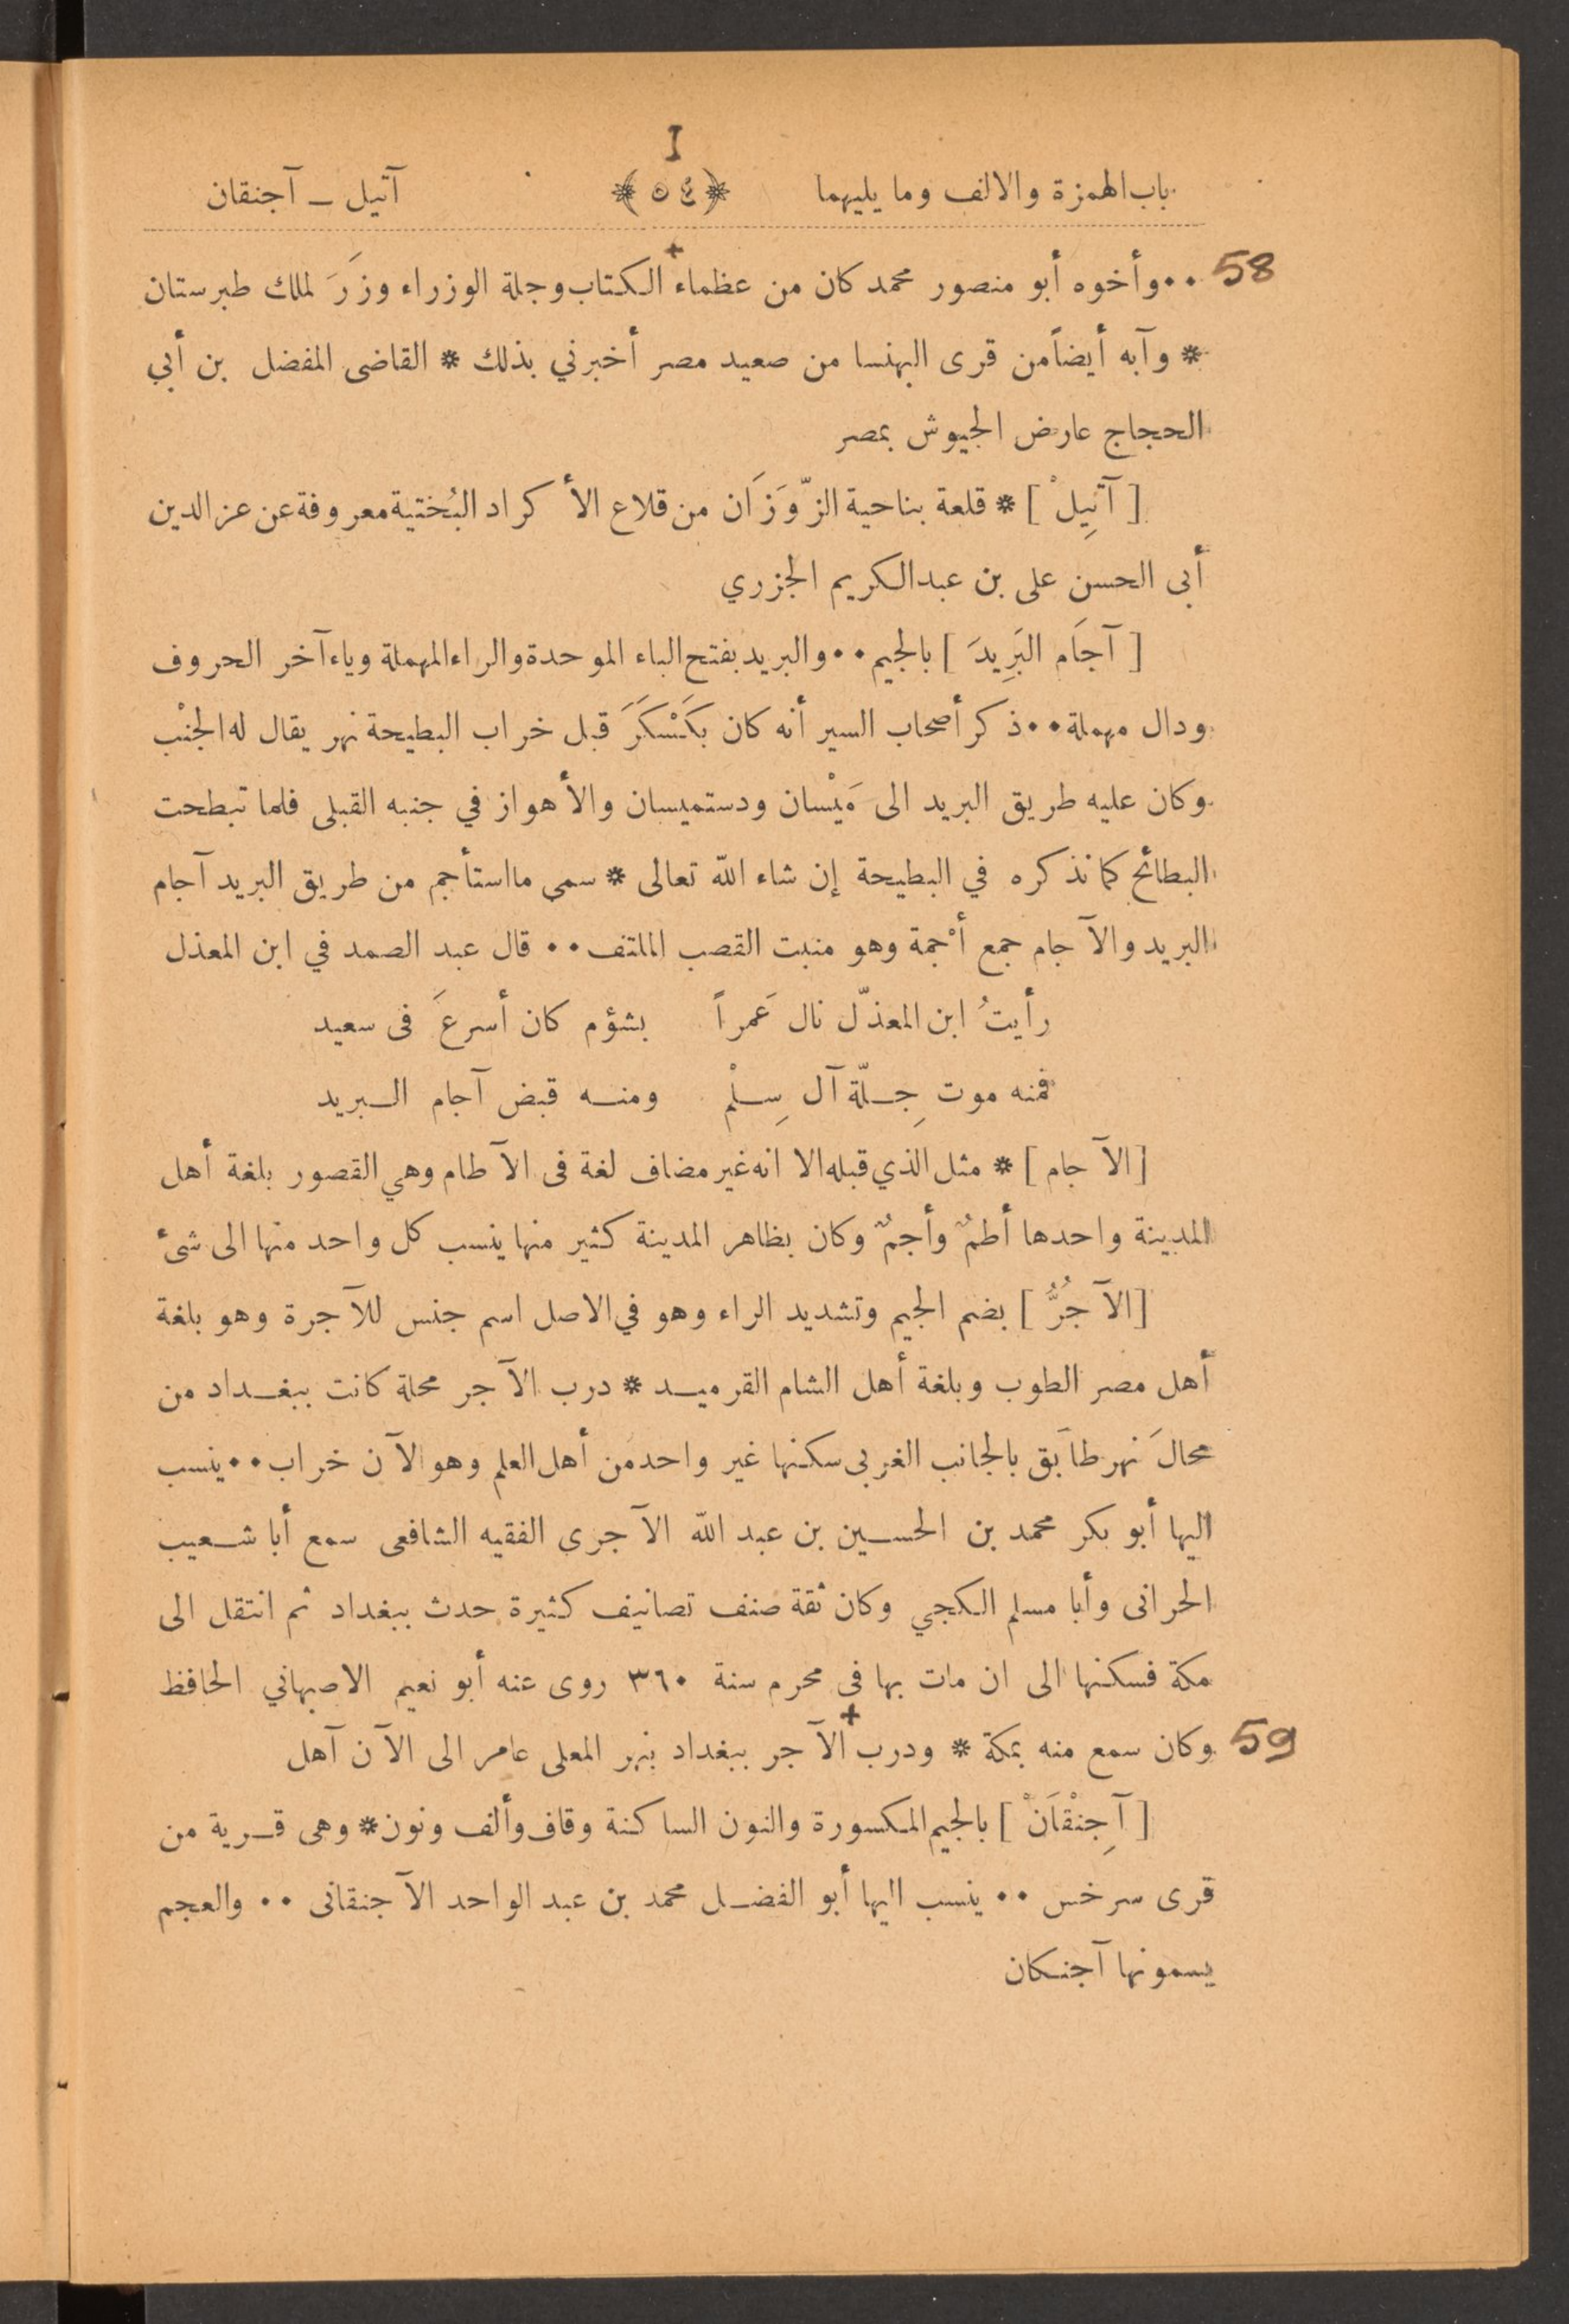 I
باب الهمزة والالف وما يليهما ﴿ ٥٤ ﴾ آتيل ــ آجنقان
58 ٠٠ وأخوه أبو منصور محمد كان من عظماء + الكتاب وجلة الوزراء وزَرَ لملك طبرستان
* وآبه أيضاً من قرى البهنسا من صعيد مصر أخبرني بذلك * القاضى المفضل بن أبي
الحجاج عارض الجيوش بمصر
[ آتِيلْ ] * قلعة بناحية الزّوَزَان من قلاع الأكراد البُختية معروفة عن عز الدين
أبى الحسن على بن عبد الكريم الجزري
[ آجَام البَرِيدَ ] بالجيم ٠٠ والبريد بفتح الباء الموحدة والراء المهملة وياء آخر الحروف
ودال مهملة ٠٠ ذكر أصحاب السير أنه كان بكَسْكَرَ قبل خراب البطيحة نهر يقال له الجنْب
وكان عليه طريق البريد الى مَيْسان ودستميسان والأهواز في جنبه القبلى فلما تبطحت
البطائح كما نذكره في البطيحة إن شاء الله تعالى * سمى ما استأجم من طريق البريد آجام
البريد والآجام جمع أَجمة وهو منبت القصب الملتف ٠٠ قال عبد الصمد في ابن المعذل
رأيتُ ابن المعذّل نال عَمراً بشؤم كان أسرعَ فى سعيد
فمنه موت جِلّة آل سِلْم ومنه قبض آجام البريد
[ الآجام ] * مثل الذي قبله الا انه غير مضاف لغة فى الآطام وهي القصور بلغة أهل
المدينة واحدها أطمٌ وأجمٌ وكان بظاهر المدينة كثير منها ينسب كل واحد منها الى شىء
[ الآجُرُّ ] بضم الجيم وتشديد الراء وهو في الاصل اسم جنس للآجرة وهو بلغة
أهل مصر الطوب وبلغة أهل الشام القرميد * درب الآجر محلة كانت ببغداد من
محالّ نهر طابَق بالجانب الغربى سكنها غير واحد من أهل العلم وهو الآن خراب ٠٠ ينسب
اليها أبو بكر محمد بن الحسين بن عبد الله الآجرى الفقيه الشافعى سمع أبا شعيب
الحرانى وأبا مسلم الكجي وكان ثقة صنف تصانيف كثيرة حدث ببغداد ثم انتقل الى
مكة فسكنها الى ان مات بها فى محرم سنة ٣٦٠ روى عنه أبو نعيم الاصبهاني الحافظ
59 وكان سمع منه بمكة * ودرب + الآجر ببغداد بنهر المعلى عامر الى الآن آهل
[ آجِنْقَانْ ] بالجيم المكسورة والنون الساكنة وقاف وألف ونون * وهى قرية من
قرى سرخس ٠٠ ينسب اليها أبو الفضل محمد بن عبد الواحد الآجنقانى ٠٠ والعجم
يسمونها آجنكان